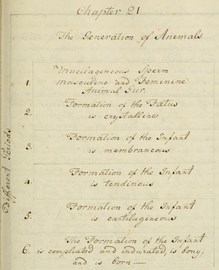 Chapter 21
The Generation of Animals
1 Mucilagenous Sperm
Masculine and Feminine
Animal Sur.
2. Formation of the Fœtus
is crystalline
3. Formation of the Infant
is membraneous
4. Formation of the Infant
is tendinous
5. Formation of the Infant
is cartilagenous
The Formation of the Infant
6. is compleated and indurated is bony,
and is born
Different Periods